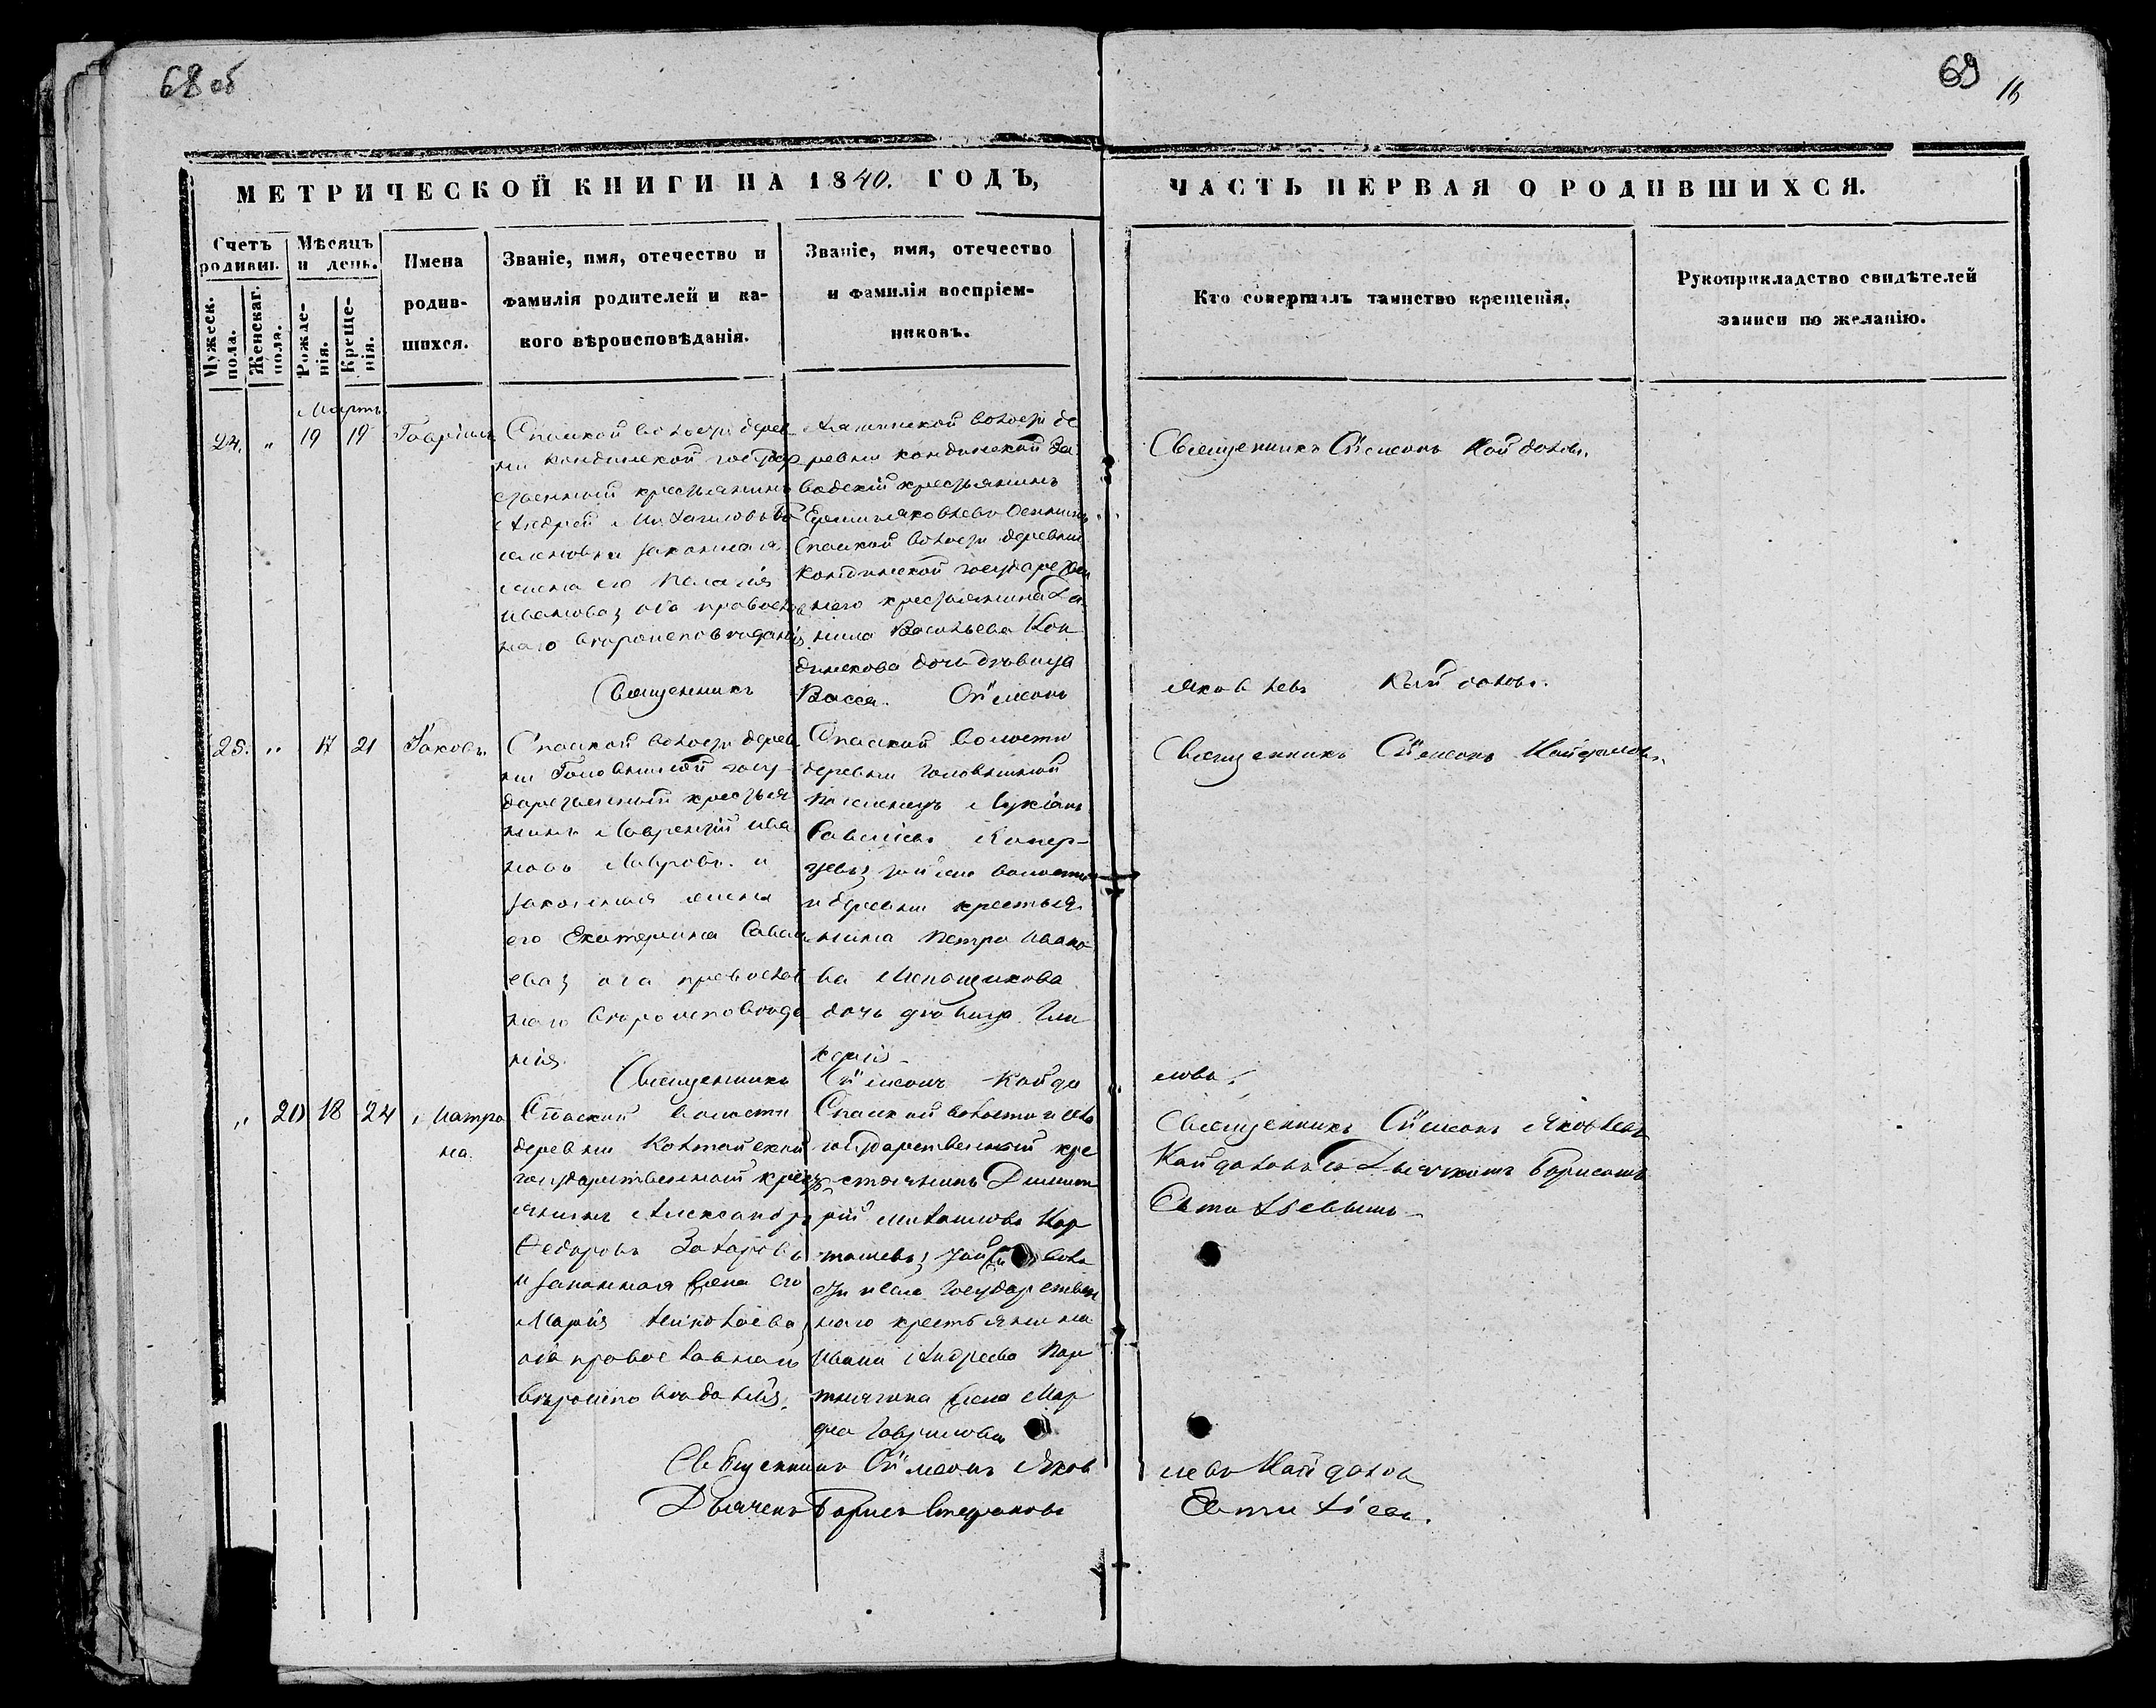 68 об
69
16
МЕТРИЧЕСКОЙ КНИГИ НА 1840. ГОДЪ,
ЧАСТЬ ПЕРВАЯ О РОДИВШИХСЯ.
Счетъ родивш.
Мужеск. пола.
Женскаг. пола.
Мѣсяцъ и день.
Рожде-
нія.
Креще-
нія.
Имена
родив-
шихся.
Званіе, имя, отечество и
фамилія родителей и ка-
кого вѣроисповѣданія.
Званіе, имя, отечество
и фамилія воспріем-
никовъ.
Кто совершалъ таинство крещенія.
Рукоприкладство свидѣтелей
записи по желанію.
Мартъ
24. " 19 19 Гавріилъ
Спаской волости дерев
ни Кондинской государ
ственный крестьянинъ
Андрей Михаиловъ
законная
жена его Пелагія
Иванова, оба православ
наго вѣроисповѣданія
волости де
ревни Кондинской За
водскій крестьянинъ
Яковлевъ
Спаской волости деревни
Кондинской государствен
наго крестьянина Да
нила Васильева Кон
динскова дочь дѣвица
Васса.
Священникъ Сѵмеонъ Кайдаловъ.
Священникъ Сѵмеонъ
Яковлевъ Кайдаловъ.
25. " 17 21 Іаковъ.
Спаской волости дерев
ни Головниной госу-
дарственный крестья
нинъ Лаврентій Ива
новъ Лавровъ. и
законная жена
его Екатерина Савели
ева, оба православ
наго вѣроисповѣда
нія.
Спаской волости
деревни Головниной
поселенецъ Лукіанъ
Савельевъ
волости
и деревни крестья
нина Петра Ивано
ва Меньщикова
дочь дѣвица Гли
керія
Священникъ Сѵмеонъ Кайдаловъ.
Священникъ Сѵмеонъ Кайда
ловъ.
" 20 18 24 Матро
на.
Спаской волости
деревни
государственный кресть
янинъ Александръ
Ѳедоровъ Захаровъ
и законная жена его
Марія Николаева,
оба православнаго
вѣроисповѣданія.
Спаской волости и села
государственный кре
стьянинъ Димит
рій Михаиловъ Кар
ташевъ, воло
сти и села государствен
наго крестьянина
Ивана Андреева Пор
тнягина жена Мар
ѳа Гаврилова
Священникъ Сѵмеонъ Яковлевъ
Кайдаловъ съ Дьячкомъ Борисомъ
Священникъ Сѵмеонъ Яков
левъ Кайдалов
Дьячекъ Борисъ Стефановъ